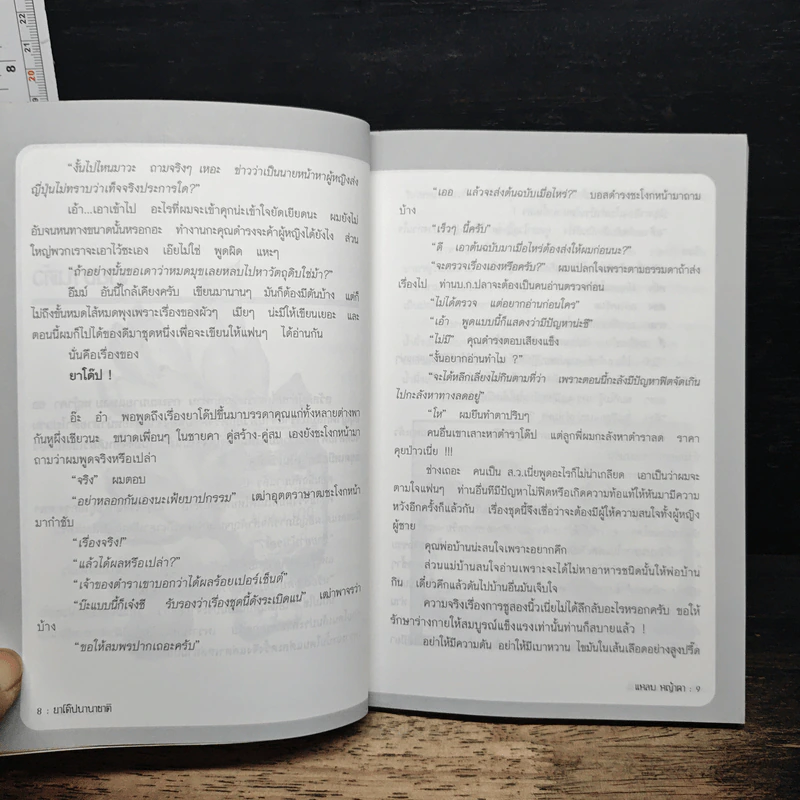 22
21
8
20
19
“งั้นไปไหนมาวะ ถามจริงๆ เหอะ ข่าวว่าเป็นนายหน้าหาผู้หญิงส่ง
ญี่ปุ่นไม่ทราบว่าเท็จจริงประการใด?”
เอ้า...เอาเข้าไป อะไรที่ผมจะเข้าคุกน่ะเข้าใจยัดเยียดนะ ผมยังไม่
อับจนหนทางขนาดนั้นหรอกอะ ทำงานกะคุณดำรงจะค้าผู้หญิงได้ยังไง ส่วน
ใหญ่พวกเราจะเอาไว้ซะเอง เอ๊ยไม่ใช่ พูดผิด แหะๆ
“ถ้าอย่างนั้นขอเดาว่าหมดมุขเลยหลบไปหาวัตถุดิบใช่ม้า?”
อืมม์ อันนี้ใกล้เคียงครับ เขียนมานานๆ มันก็ต้องมีตันบ้าง แต่ก็
ไม่ถึงขั้นหมดไส้หมดพุงเพราะเรื่องของผัวๆ เมียๆ น่ะมีให้เขียนเยอะ และ
ตอนนี้ผมก็ไปได้ของดีมาชุดหนึ่งเพื่อจะเขียนให้แฟนๆ ได้อ่านกัน
นั่นคือเรื่องของ
ยาโด๊ป !
อ๊ะ อ๋า พอพูดถึงเรื่องยาโด๊ปขึ้นมาบรรดาคุณแก่ทั้งหลายต่างพา
กันหูผึ่งเชียวนะ ขนาดเพื่อนๆ ในชายคา คู่สร้าง-คู่สม เองยังชะโงกหน้ามา
ถามว่าผมพูดจริงหรือเปล่า
“จริง” ผมตอบ
“อย่าหลอกกันเองนะเฟ้ยบาปกรรม” เฒ่าอุตตราษาฒชะโงกหน้า
มากำชับ
“เรื่องจริง!”
“แล้วได้ผลหรือเปล่า?”
“เจ้าของตำราเขาบอกว่าได้ผลร้อยเปอร์เซ็นต์”
“บ๊ะแบบนี้ก็เจ๋งซี รับรองว่าเรื่องชุดนี้ดังระเบิดแน่” เฒ่าพาจรว่า
บ้าง
“ขอให้สมพรปากเถอะครับ”
8 : ยาโด๊ปนานาชาติ
“เออ แล้วจะส่งต้นฉบับเมื่อไหร่?” บอสดำรงชะโงกหน้ามาถาม
บ้าง
“เร็วๆ นี้ครับ”
“ดี เอาต้นฉบับมาเมื่อไหร่ต้องส่งให้ผมก่อนนะ?”
“จะตรวจเรื่องเองหรือครับ?” ผมแปลกใจเพราะตามธรรมดาถ้าส่ง
เรื่องไป ท่านบ.ก.ปลาจะต้องเป็นคนอ่านตรวจก่อน
“ไม่ได้ตรวจ แต่อยากอ่านก่อนใคร”
“เอ้า พูดแบบนี้ก็แสดงว่ามีปัญหาน่ะซี”
“ไม่มี” คุณดำรงตอบเสียงแข็ง
“งั้นอยากอ่านทำไม ?”
“จะได้หลีกเลี่ยงไม่กินตามที่ว่า เพราะตอนนี้กะลังมีปัญหาฟิตจัดเกิน
ไปกะลังหาทางลดอยู่”
“โห” ผมยืนทำตาปริบๆ
คนอื่นเขาเสาะหาตำราโด๊ป แต่ลูกพี่ผมกะลังหาตำราลด ราคา
คุยป่าวเนี่ย !!!
ช่างเถอะ คนเป็น ส.ว.เนี่ยพูดอะไรก็ไม่น่าเกลียด เอาเป็นว่าผมจะ
ตามใจแฟนๆ ท่านอื่นที่มีปัญหาไม่ฟิตหรือเกิดความท้อแท้ให้หันมามีความ
หวังอีกครั้งก็แล้วกัน เรื่องชุดนี้จึงเชื่อว่าจะต้องมีผู้ให้ความสนใจทั้งผู้หญิง
ผู้ชาย
คุณพ่อบ้านน่ะสนใจเพราะอยากคึก
ส่วนแม่บ้านสนใจอ่านเพราะจะได้ไม่หาอาหารชนิดนั้นให้พ่อบ้าน
กิน เดี๋ยวคึกแล้วดันไปบ้านอื่นมันเจ็บใจ
ความจริงเรื่องการชูสองนิ้วเนี่ยไม่ได้ลึกลับอะไรหรอกครับ ขอให้
รักษาร่างกายให้สมบูรณ์แข็งแรงเท่านั้นท่านก็สบายแล้ว !
อย่าให้มีความดัน อย่าให้มีเบาหวาน ไขมันในเส้นเลือดอย่างสูงปรี๊ด
แหลม หญ้าคา : 9